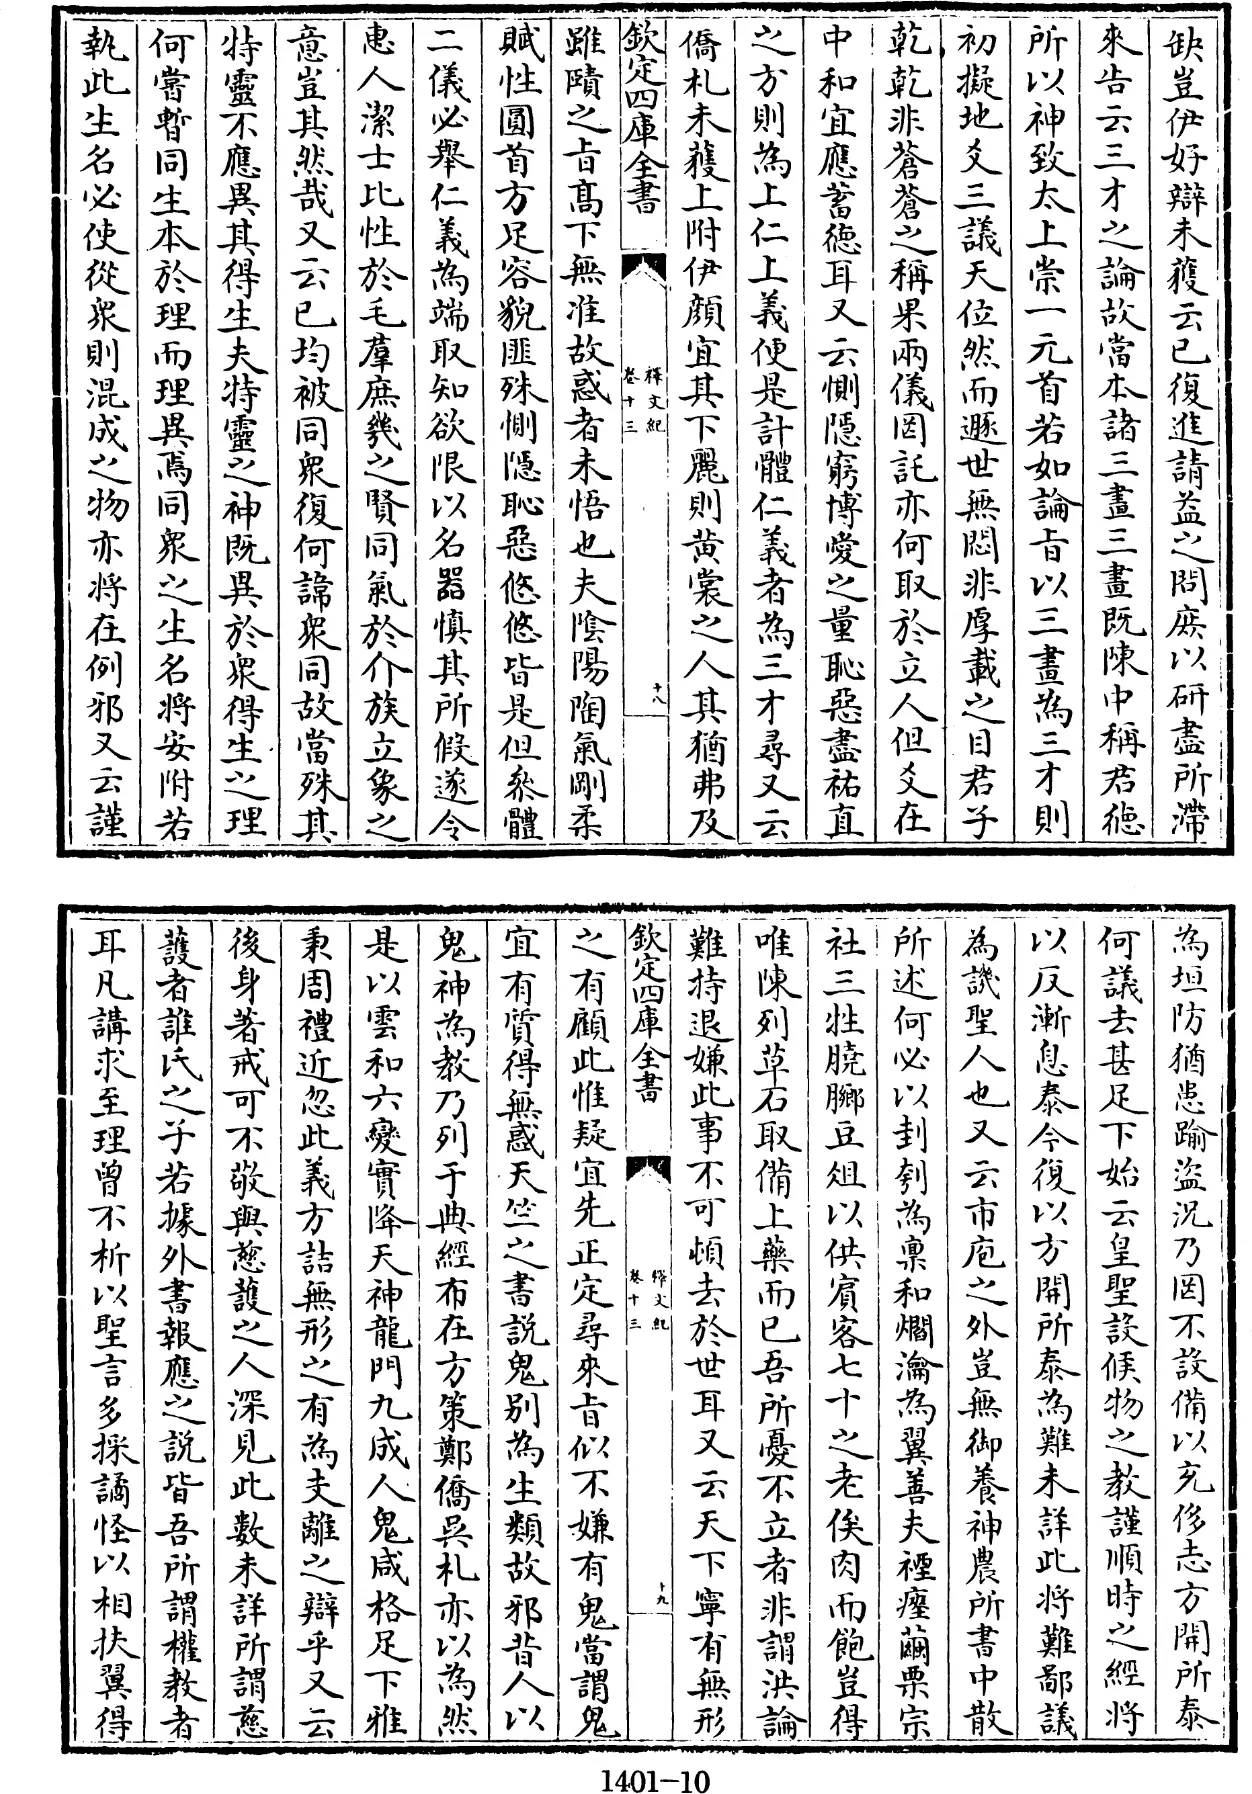 缺豈伊好辯未蓰云已復進請益之問庶以研盡所滯
來告云三才之論故當本諸三畫三畫既陳中稱君德
所以神致太上崇一元首若如論旨以三畫為三才則
初擬地爻三議天位然而遯世無悶非厚載之目君子
乾乾非蒼蒼之稱果兩儀罔託亦何取於立人但爻在
中和宜應蓄德耳又云惻隱窮博愛之量恥惡盡祐直
之方則為上仁上義便是計體仁義者為三才尋又云
僑札未蓰上附伊顏宜其下麗則黃裳之人其猶弗及
欽定四庫全書
釋文紀
卷十三
十八
雖賾之旨髙下無准故惑者未悟也夫陰陽陶氣剛柔
賦性圓首方足容貌匪殊惻隱恥惡悠悠皆是但參體
二儀必舉仁義為端取知欲限以名器慎其所假遂令
惠人潔士比性於毛羣庶幾之賢同氣於介族立象之
意豈其然哉又云已均被同衆復何諦衆同故當殊其
特靈不應異其得生夫特靈之神既異於衆得生之理
何嘗暫同生本於理而理異焉同衆之生名將安附若
執此生名必使從衆則混成之物亦將在例邪又云謹
為垣防猶患踰盜況乃罔不設備以充侈志方開所泰
何議去甚足下始云皇聖設候物之教謹順時之經將
以反漸息泰今復以方開所泰為難未詳此將難鄙議
為譏聖人也又云市庖之外豈無御養神農所書中散
所述何必以刲刳為稟和爓瀹為翼善夫禋瘞繭栗宗
社三牲膮膷豆俎以供賓客七十之老俟肉而飽豈得
唯陳列草石取備上藥而已吾所憂不立者非謂洪論
難持退嫌此事不可頓去於世耳又云天下寧有無形
欽定四庫全書
釋文紀
卷十三
十九
之有顧此惟疑宜先正定尋來旨似不嫌有鬼當謂鬼
宜有質得無惑天竺之書說鬼別為生類故邪昔人以
鬼神為教乃列于典經布在方策鄭僑吳札亦以為然
是以雲和六變實降天神龍門九成人鬼咸格足下雅
秉周禮近忽此義方詰無形之有為支離之辯乎又云
後身著戒可不敬與慈護之人深見此數未詳所謂慈
護者誰氏之子若據外書報應之說皆吾所謂權教者
耳凡講求至理曾不析以聖言多採譎怪以相扶翼得
1401-10